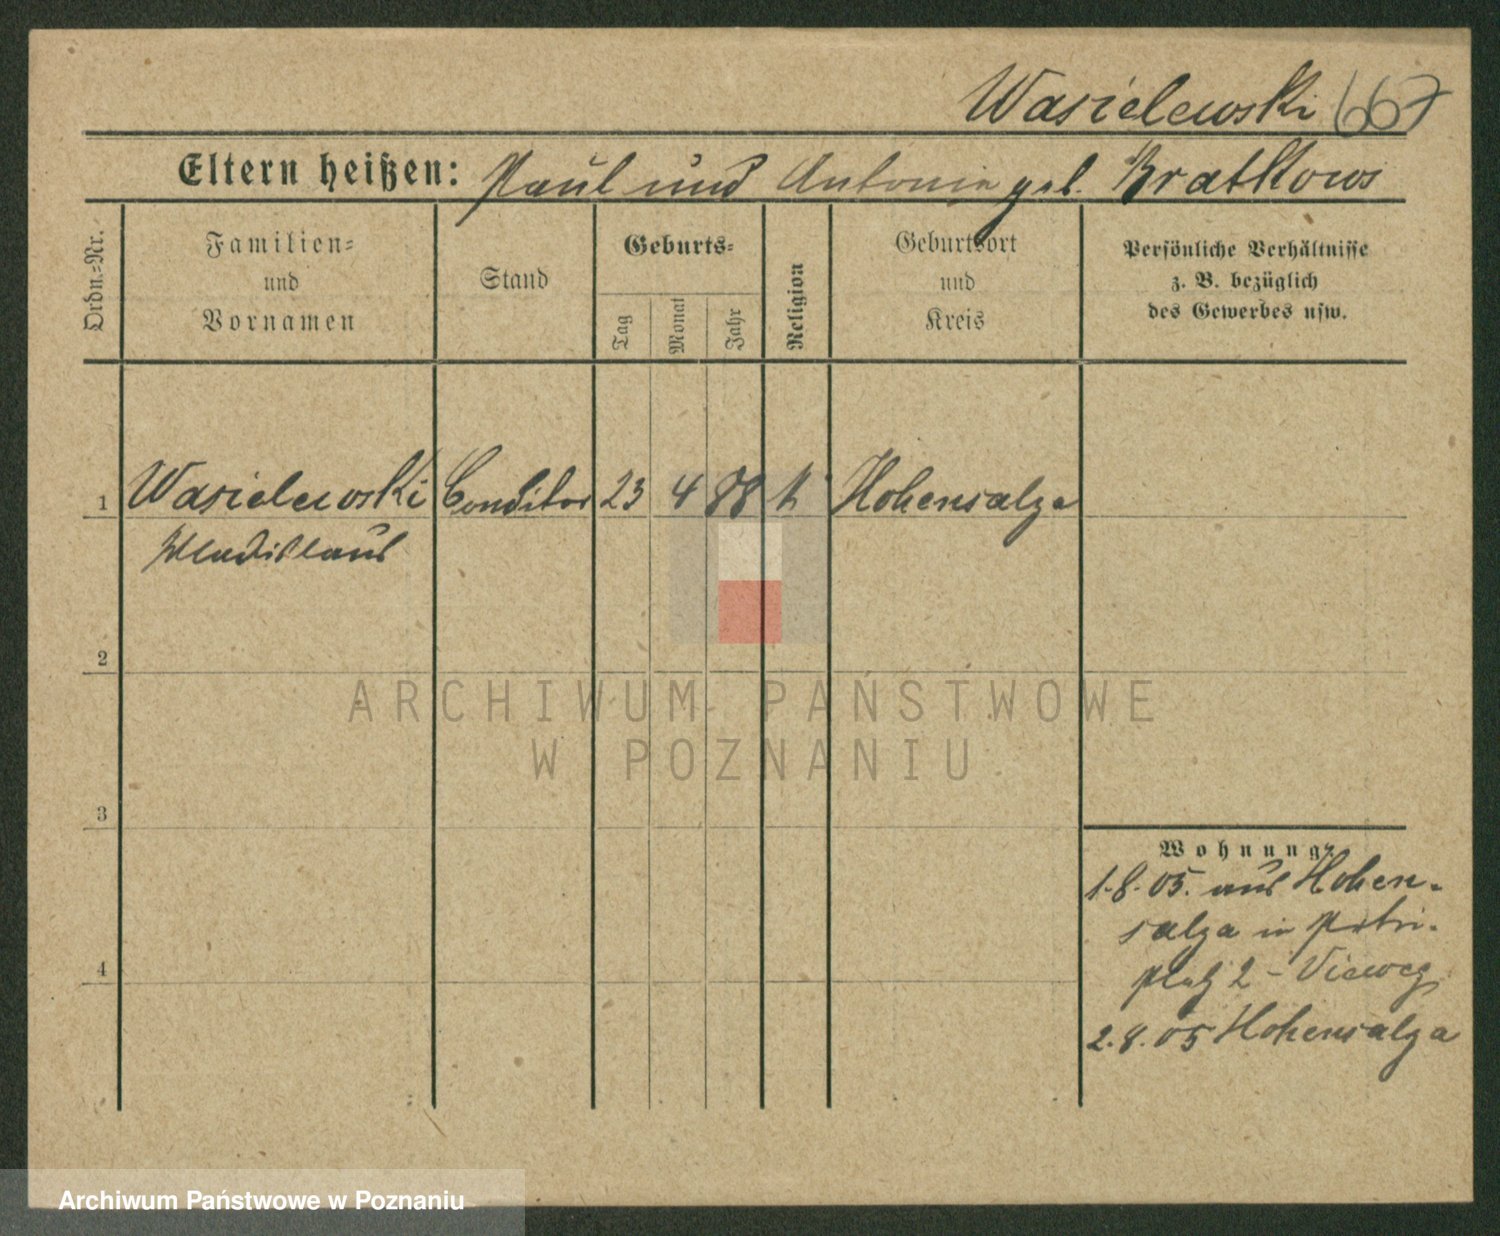 Wasielewski 667
Eltern heißen: Paul und Antonie geb. Bratkows
Ordn.=Nr.
Familien=
und
Vornamen
Stand
Geburts=
Tag
Monat
Jahr
Religion
Geburtsort
und
Kreis
Persönliche Verhältnisse
z. B. bezüglich
des Gewerbes usw.
1 Wasielewski Conditor 23 4 88 k Hohensalza
Wladislaus
2
3
4
Wohnung:
1.8.05. aus Hohen-
salza in Petri-
platz 2 - Vieweg
2.8.05 Hohensalza
ARCHIWUM PAŃSTWOWE
W POZNANIU
Archiwum Państwowe w Poznaniu